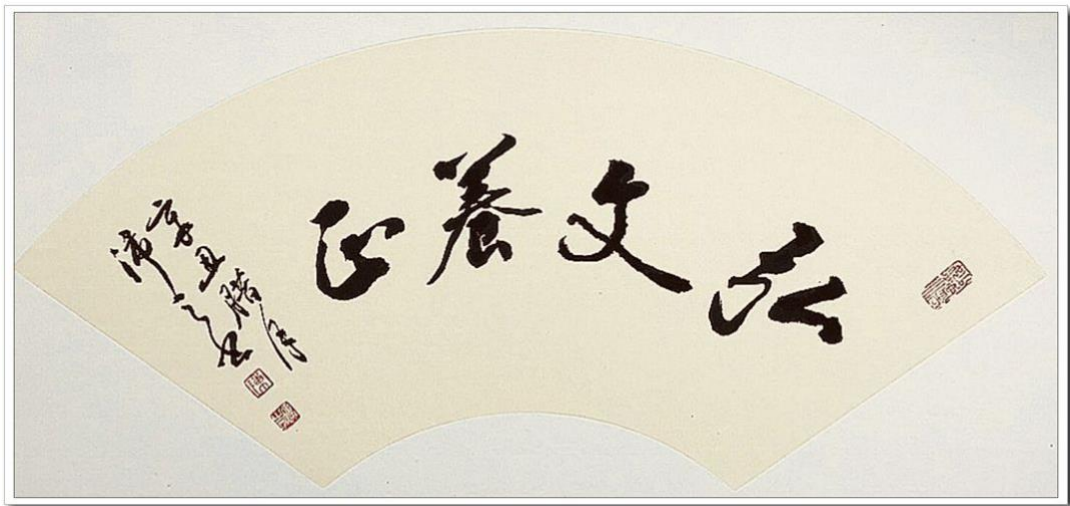 弘文養正
辛丑腊月